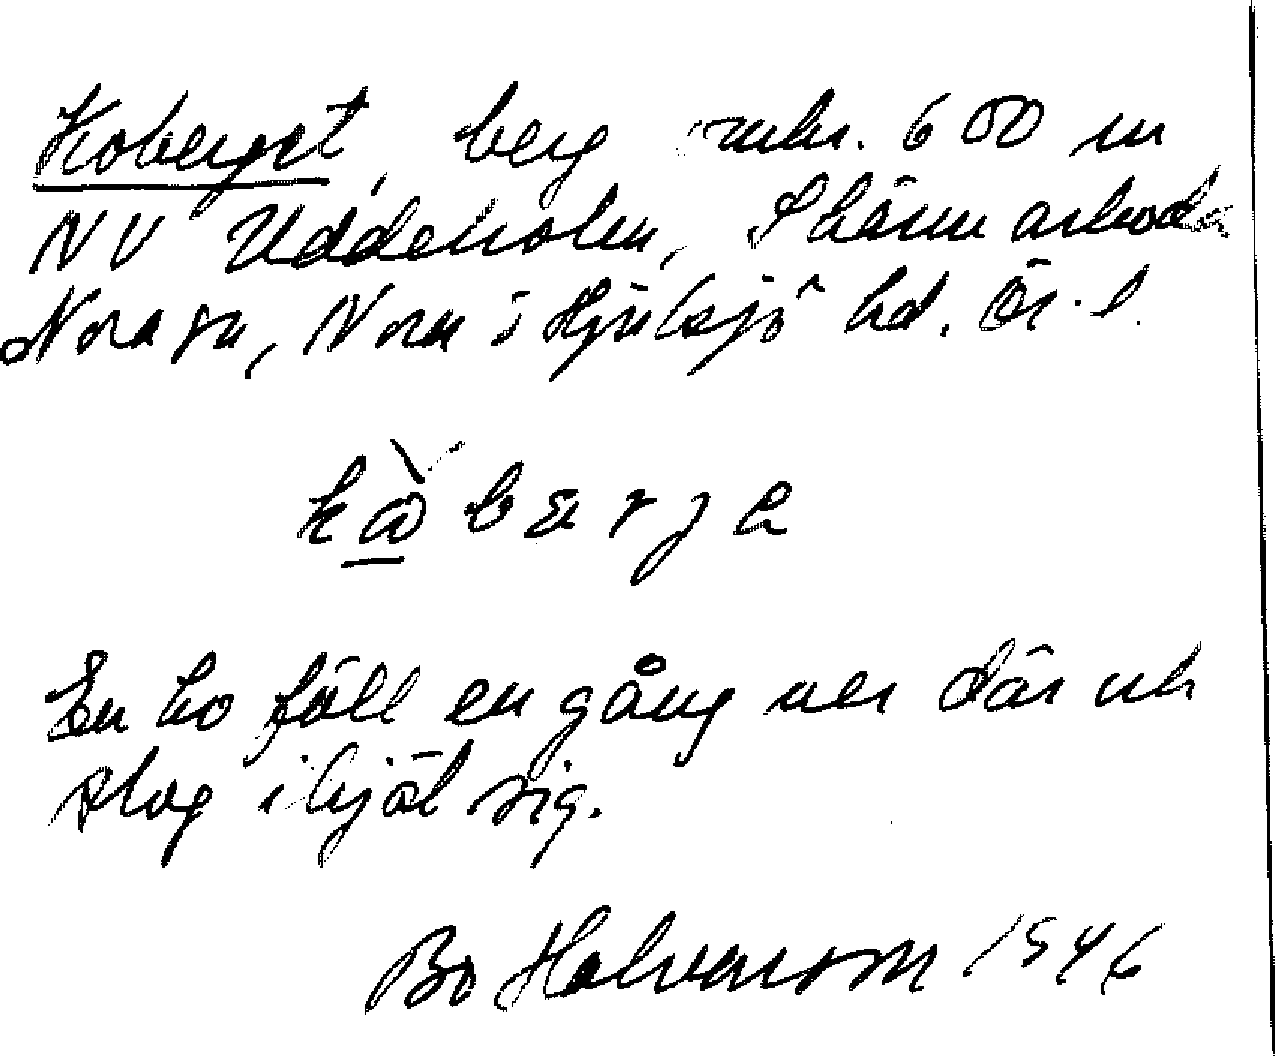 Koberget, berg omkr. 600 m
NV Uddeholm, Skärmarboda
Nora sn, Nora i Hjulsjö hd. Ör. l.
kωbεrje
En ko föll en gång ner där och
slog ihjäl sig.
Bo Halvarson 1946